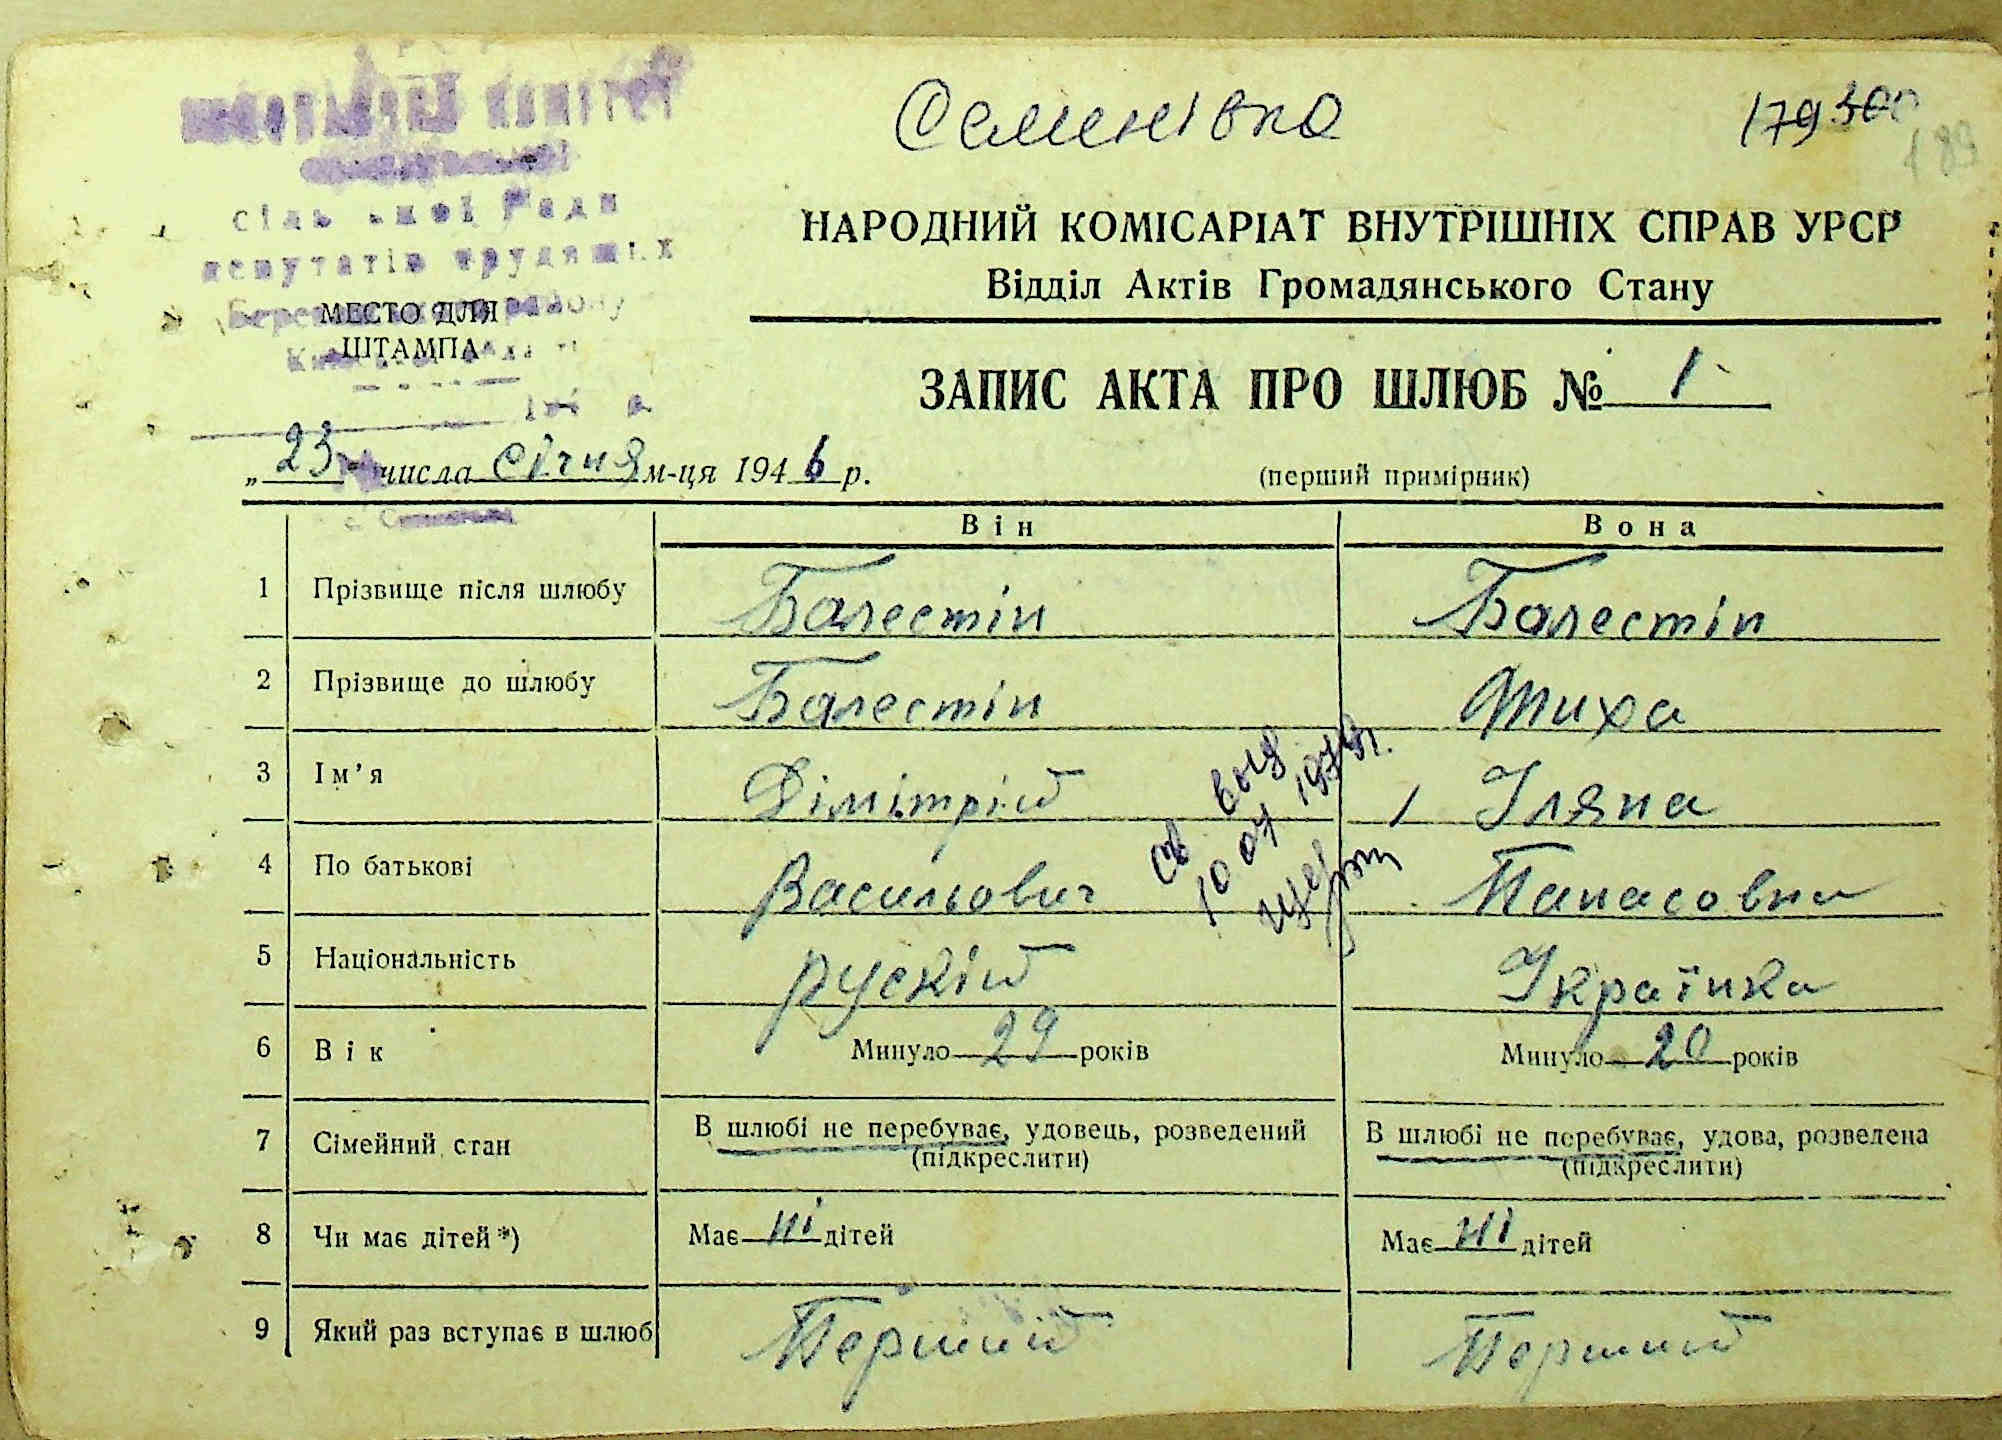 Семенівка
179 300
189
сільської Ради
депутатів трудящих
МЕСТО ДЛЯ
ШТАМПА
НАРОДНИЙ КОМІСАРІАТ ВНУТРІШНІХ СПРАВ УРСР
Відділ Актів Громадянського Стану
ЗАПИС АКТА ПРО ШЛЮБ № 1
„ 23 " числа січня м-ця 1946 р.
(перший примірник)
Він Вона
1 Прізвище після шлюбу Балестін Балестін
2 Прізвище до шлюбу Балестін Тиха
3 Ім'я Дімітрій Іляна
4 По батькові Васильович Панасовна
5 Національність рускій Українка
6 Вік Минуло 29 років Минуло 20 років
7 Сімейний стан В шлюбі не перебуває, удовець, розведений В шлюбі не перебуває, удова, розведена
(підкреслити) (підкреслити)
8 Чи має дітей*) Має ні дітей Має ні дітей
9 Який раз вступає в шлюб Перший Перший
св выд
10 07